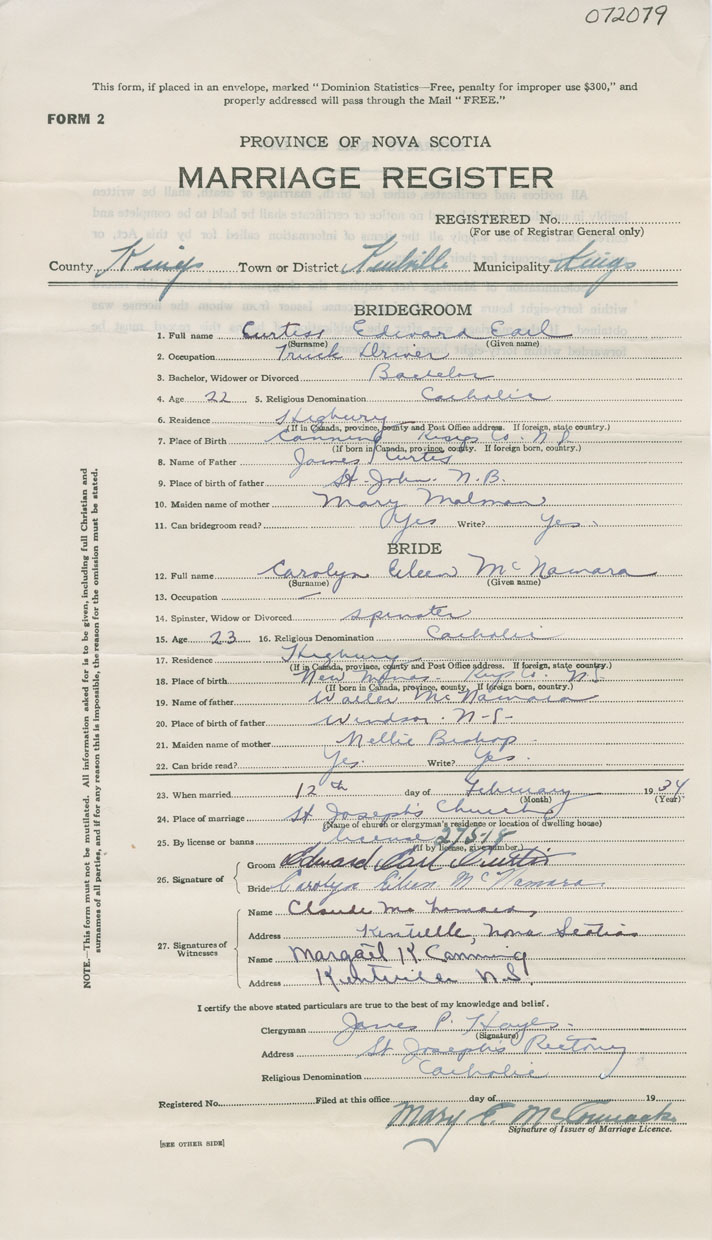 072079
This form, if placed in an envelope, marked "Dominion Statistics—Free, penalty for improper use $300," and
properly addressed will pass through the Mail "FREE."
FORM 2
PROVINCE OF NOVA SCOTIA
MARRIAGE REGISTER
REGISTERED No.
(For use of Registrar General only)
County Kings Town or District Kentville Municipality Kings
BRIDEGROOM
1. Full name Curtiss Edward Earl
(Surname) (Given name)
2. Occupation Truck Driver
3. Bachelor, Widower or Divorced Bachelor
4. Age 22 5. Religious Denomination Catholic
6. Residence Highbury
(If in Canada, province, county and Post Office address. If foreign, state country.)
7. Place of Birth Canning Kings Co. N.S.
(If born in Canada, province, county. If foreign born, country.)
8. Name of Father James Curtis
9. Place of birth of father St. John. N.B.
10. Maiden name of mother Mary
11. Can bridegroom read? Yes Write? Yes.
BRIDE
12. Full name Carolyn Eileen McNamara
(Surname) (Given name)
13. Occupation —
14. Spinster, Widow or Divorced spinster
15. Age 23 16. Religious Denomination Catholic
17. Residence Highbury
(If in Canada, province, county and Post Office address. If foreign, state country.)
18. Place of birth New Minas- Kings Co. N.S.
(If born in Canada, province, county, If foreign born, country.)
19. Name of father Walter McNamara
20. Place of birth of father Windsor. N-S-
21. Maiden name of mother Nellie Bishop-
22. Can bride read? Yes. Write? Yes.
23. When married 12th day of February 1934
(Month) (Year)
24. Place of marriage St Joseph's Church
(Name of church or clergyman's residence or location of dwelling house)
25. By license or banns license 27518
(If by license, give number.)
26. Signature of
Groom Edward Earl Curtis
Bride Carolyn Eileen McNamara.
27. Signatures of Witnesses
Name Claude McNamara,
Address Kentville, Nova Scotia
Name Margaret K. Canning
Address Kentville N.S.
I certify the above stated particulars are true to the best of my knowledge and belief.
Clergyman James P. Hayes.
(Signature)
Address St Joseph's Rectory
Religious Denomination Catholic
Registered No. Filed at this office day of 19
Mary E. McCormack
Signature of Issuer of Marriage Licence.
[SEE OTHER SIDE]
NOTE.—This form must not be mutilated. All information asked for is to be given, including full Christian and
surnames of all parties, and if for any reason this is impossible, the reason for the omission must be stated.